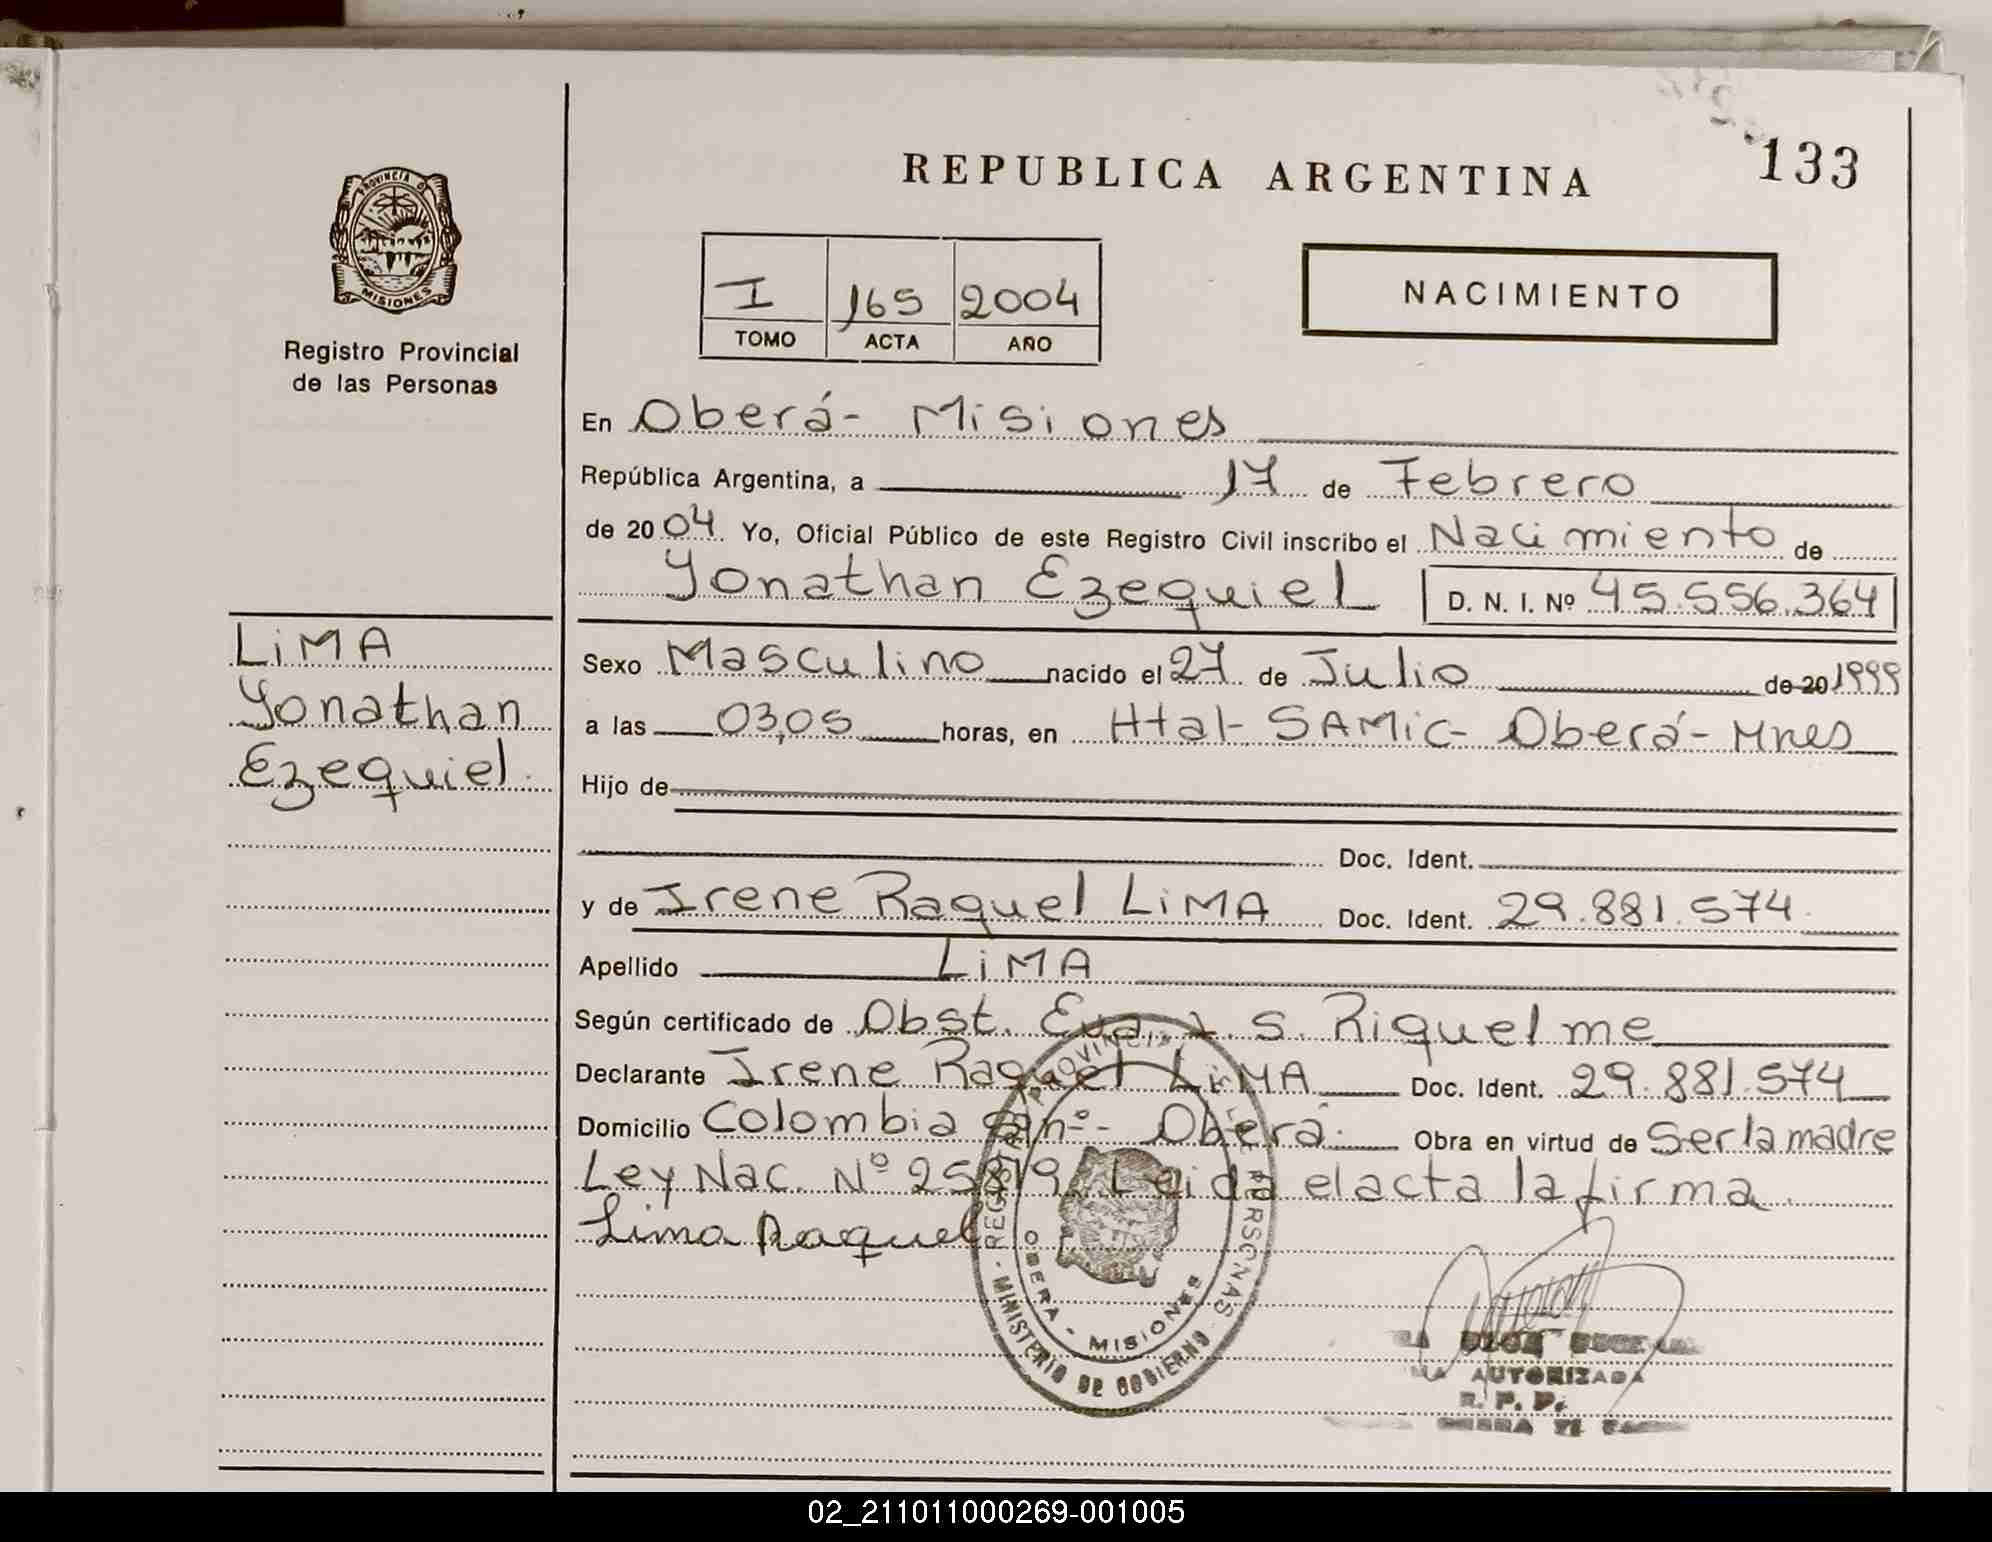 REPUBLICA ARGENTINA
133
PROVINCIA DE
MISIONES
Registro Provincial
de las Personas
I 165 2004
TOMO ACTA AÑO
NACIMIENTO
En Oberá- Misiones
República Argentina, a 17 de Febrero
de 2004 Yo, Oficial Público de este Registro Civil inscribo el Nacimiento de
Yonathan Ezequiel D. N. I. Nº 45.556.364
LiMA
Yonathan
Ezequiel.
Sexo Masculino nacido el 27 de Julio de 20 1999
a las 03,05 horas, en Htal- SAMic- Oberá- Mnes
Hijo de
Doc. Ident.
y de Irene Raquel LiMA Doc. Ident. 29.881.574.
Apellido LiMA
Según certificado de Obst. Eva L. S. Riquelme
Declarante Irene Raquel LiMA Doc. Ident. 29.881.574
Domicilio Colombia s/nº- Oberá. Obra en virtud de Ser la madre
Ley Nac. Nº 25819. Leida el acta la firma.
Lima Raquel
REGISTRO PROVINCIAL DE LAS PERSONAS
- MINISTERIO DE GOBIERNO -
OBERA - MISIONES
AUTORIZADA
R. P. P.
02_211011000269-001005